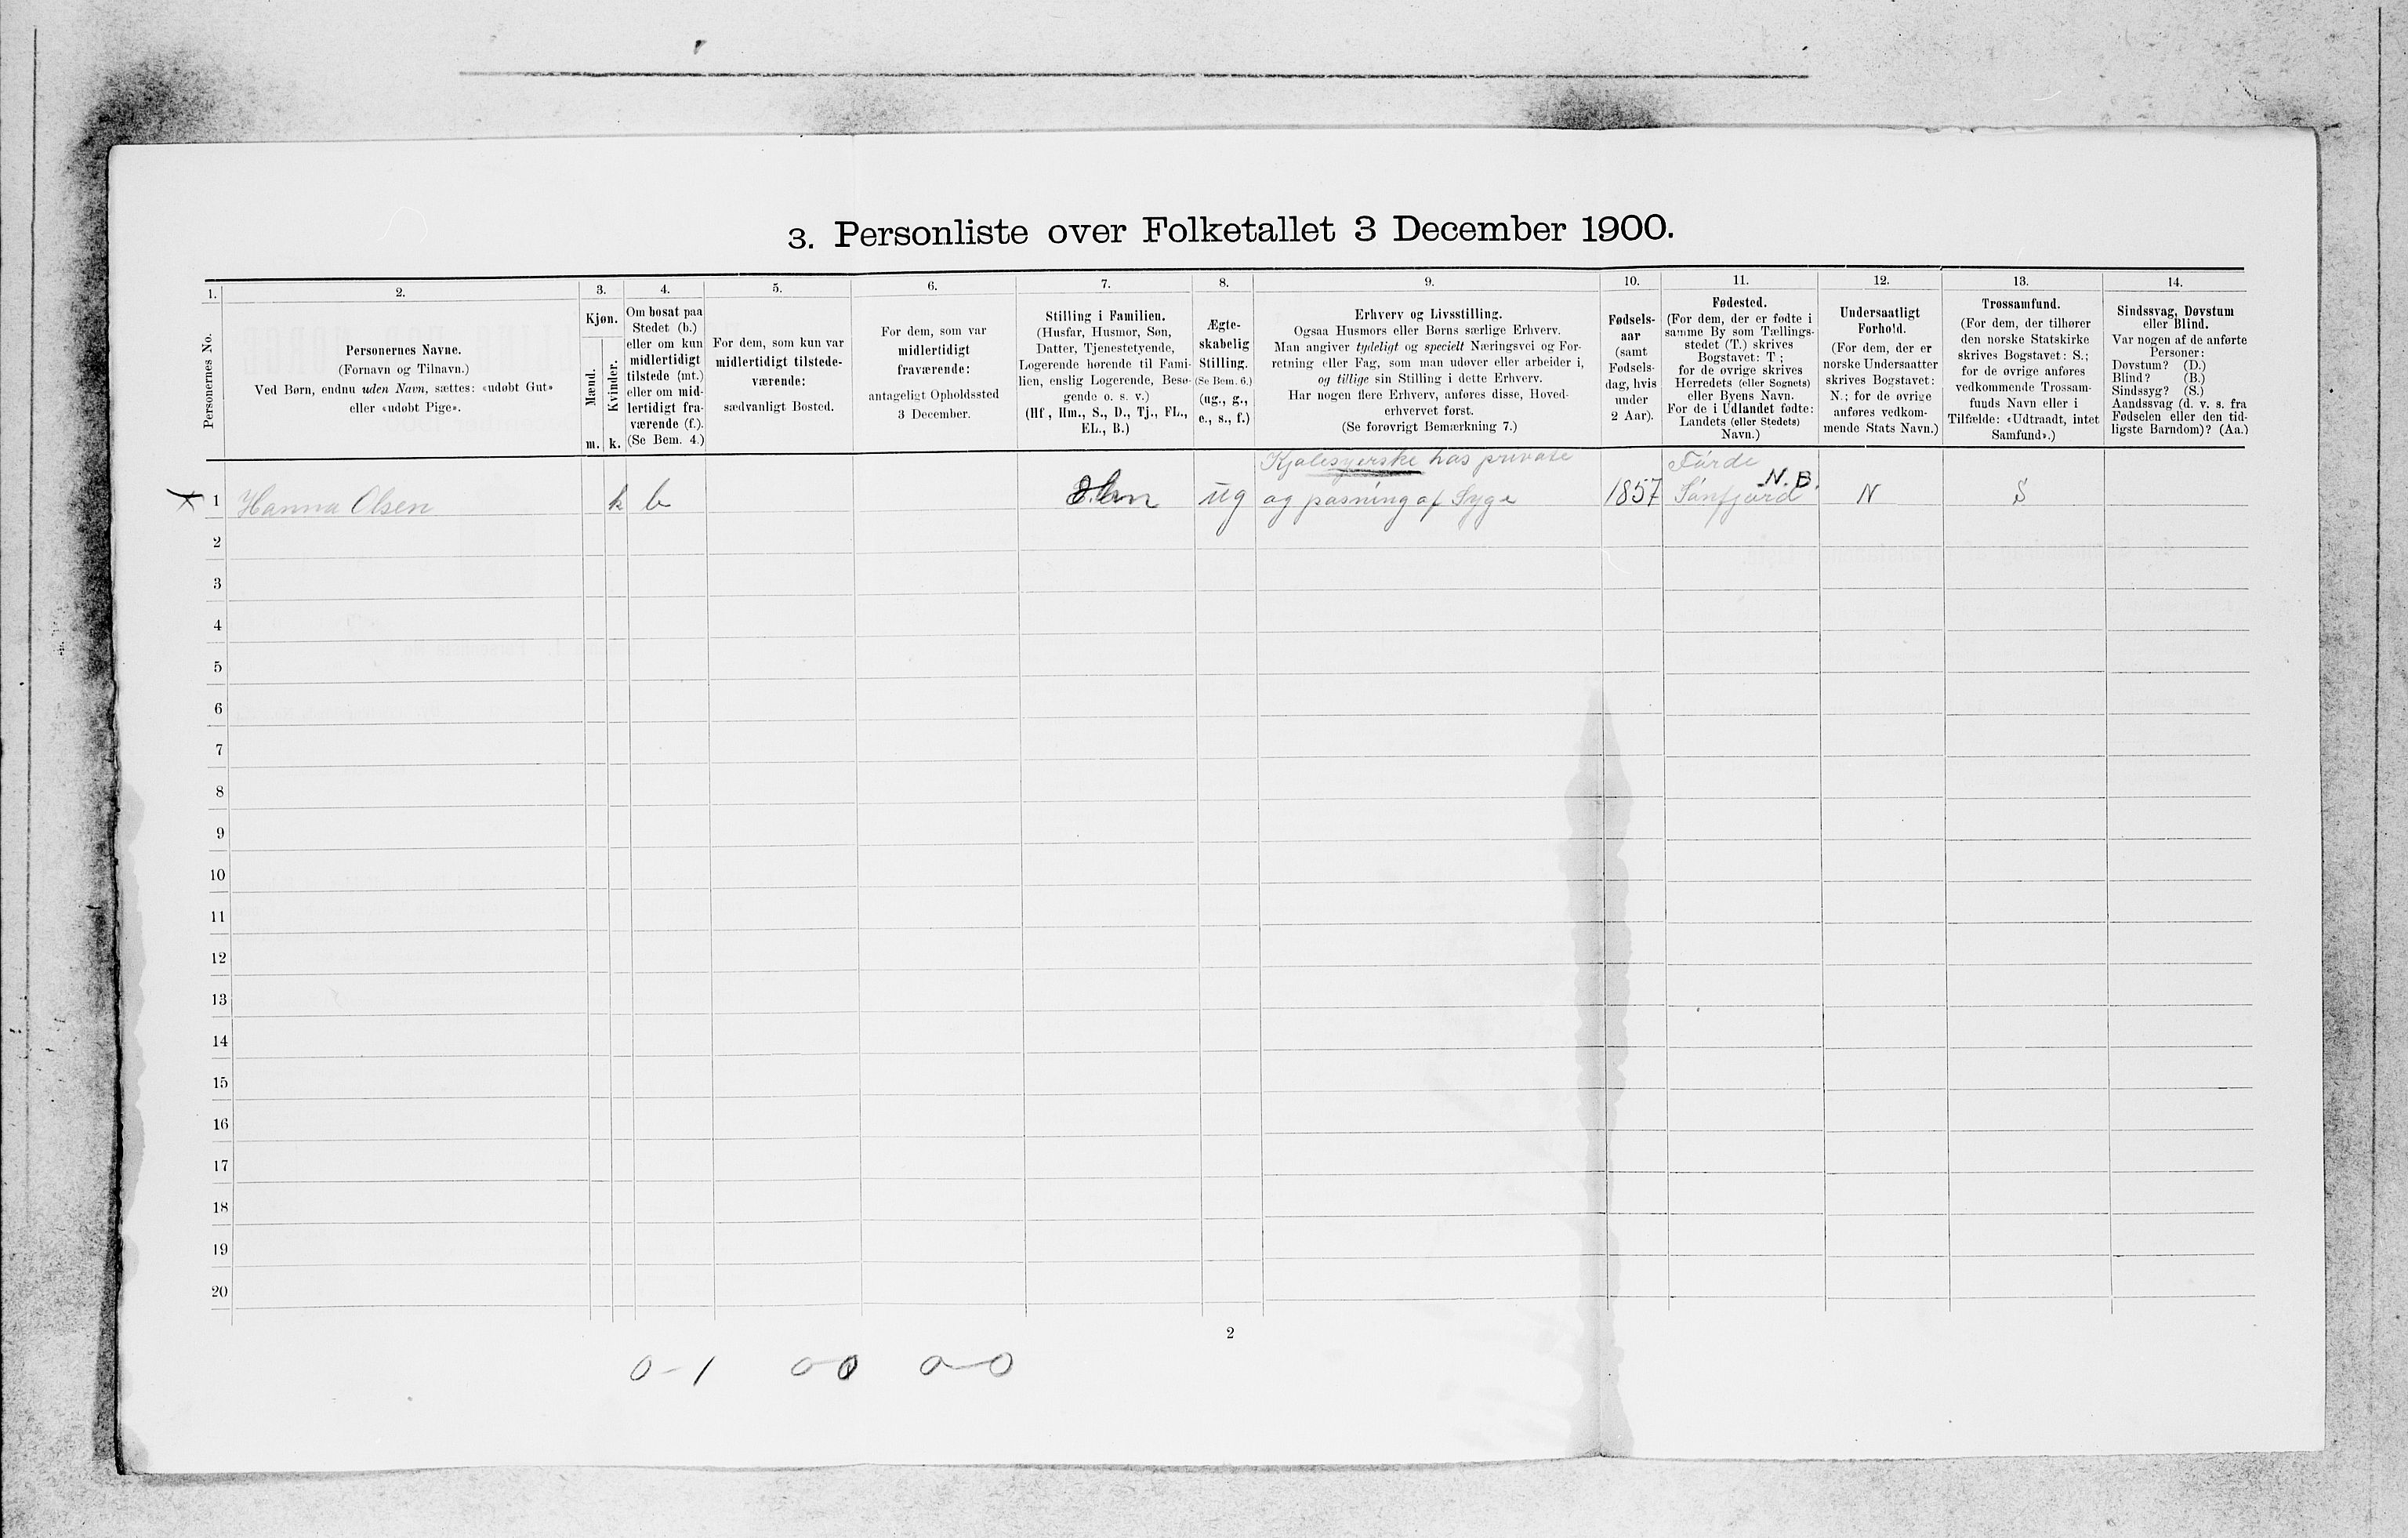 3. Personliste over Folketallet 3 December 1900.
1.
Personernes No.
2.
Personernes Navne.
(Fornavn og Tilnavn.)
Ved Børn, endnu uden Navn, sættes: «udøbt Gut»
eller «udøbt Pige».
3.
Kjøn.
Mænd.
m.
Kvinder.
k.
4.
Om bosat paa
Stedet (b.)
eller om kun
midlertidigt
tilstede (mt.)
eller om mid-
lertidigt fra-
værende (f.).
(Se Bem. 4.)
5.
For dem, som kun var
midlertidigt tilstede-
værende:
sædvanligt Bosted.
6.
For dem, som var
midlertidigt
fraværende:
antageligt Opholdssted
3 December.
7.
Stilling i Familien.
(Husfar, Husmor, Søn,
Datter, Tjenestetyende,
Logerende hørende til Fami-
lien, enslig Logerende, Besø-
gende o. s. v.)
(Hf., Hm., S., D., Tj., FL.,
EL., B.)
8.
Ægte-
skabelig
Stilling.
(Se Bem. 6.)
(ug., g.,
e., s., f.)
9.
Erhverv og Livsstilling.
Ogsaa Husmors eller Børns særlige Erhverv.
Man angiver tydeligt og specielt Næringsvei og For-
retning eller Fag, som man udøver eller arbeider i,
og tillige sin Stilling i dette Erhverv.
Har nogen flere Erhverv, anføres disse, Hoved-
erhvervet først.
(Se forøvrigt Bemærkning 7.)
10.
Fødsels-
aar
(samt
Fødsels-
dag, hvis
under
2 Aar).
11.
Fødested.
(For dem, der er fødte i
samme By som Tællings-
stedet (T.) skrives
Bogstavet: T;
for de øvrige skrives
Herredets (eller Sognets)
eller Byens Navn.
For de i Udlandet fødte:
Landets (eller Stedets)
Navn.)
12.
Undersaatligt
Forhold.
(For dem, der er
norske Undersaatter
skrives Bogstavet:
N.; for de øvrige
anføres vedkom-
mende Stats Navn.)
13.
Trossamfund.
(For dem, der tilhører
den norske Statskirke
skrives Bogstavet: S.;
for de øvrige anføres
vedkommende Trossam-
funds Navn eller i
Tilfælde: «Udtraadt, intet
Samfund».)
14.
Sindssvag, Døvstum
eller Blind.
Var nogen af de anførte
Personer:
Døvstum? (D.)
Blind? (B.)
Sindssyg? (S.)
Aandssvag (d. v. s. fra
Fødselen eller den tid-
ligste Barndom)? (Aa.)
Kjolesyerske hos private
Førde
1 Hanna Olsen k b ug og pasning af Syge 1857 Sønfjord N. B. N S
2
3
4
5
6
7
8
9
10
11
12
13
14
15
16
17
18
19
20
2
0-1 00 0-0